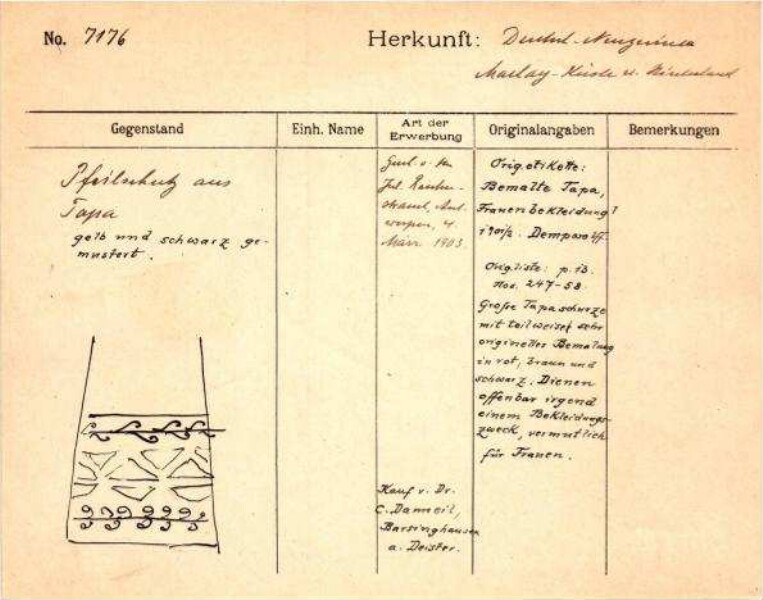 No. 7176
Herkunft: Deutsch-Neuguinea
Maclay-Küste u. Hinterland
Gegenstand
Einh. Name
Art der Erwerbung
Originalangaben
Bemerkungen
Pfeilschutz aus
Tapa
gelb und schwarz ge-
mustert.
werpen, 4.
März 1903
Kauf v. Dr.
C. Danneil,
Barsinghausen
a. Deister.
Orig. etikette:
Bemalte Tapa,
Frauenbekleidung?
1901/2. Dempwolff.
Orig. liste: p. 13.
Nos. 247-58.
Große Tapaschurze
mit teilweiser sehr
origineller Bemalung
in rot, braun und
schwarz. Dienen
offenbar irgend
einem Bekleidungs-
zweck, vermutlich
für Frauen.